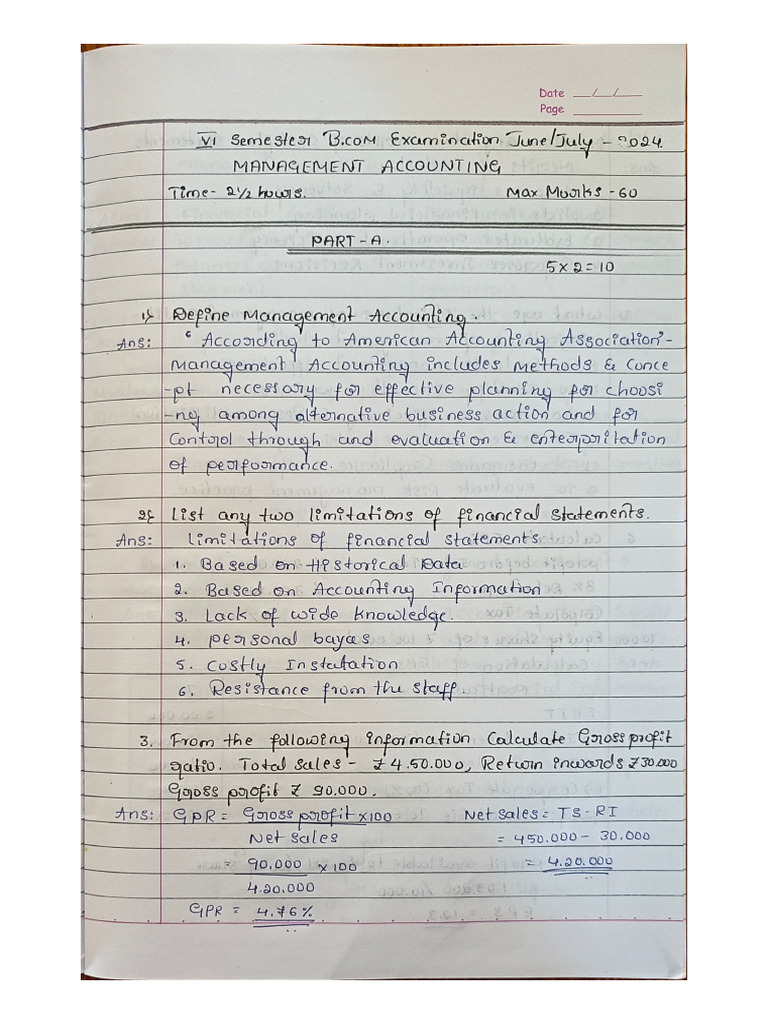 Date __/__/__
Page ________
VI Semester B.COM Examination June/July - 2024.
MANAGEMENT ACCOUNTING
Time- 2 1/2 hours. Max Marks - 60
PART - A.
5 x 2 = 10
1) Define Management Accounting.
Ans: ‘According to American Accounting Association’-
Management Accounting includes Methods & Conce
-pt necessary for effective planning for choosi
-ng among alternative business action and for
Control through and evaluation & enterpritation
of performance.
2) List any two limitations of financial statements.
Ans: Limitations of financial statements
1. Based on Historical Data
2. Based on Accounting Information
3. Lack of wide knowledge.
4. personal bayas
5. Costly Instutation
6. Resistance from the staff.
3. From the following information Calculate Gross profit
ratio. Total sales - ₹ 4.50.000, Return inwards ₹ 30.000
Gross profit ₹ 90.000.
Ans: GPR = Gross profit x100 Net sales = TS - RI
Net sales = 450.000 - 30.000
= 90.000 x 100 = 4.20.000
4.20.000
GPR = 4.76%